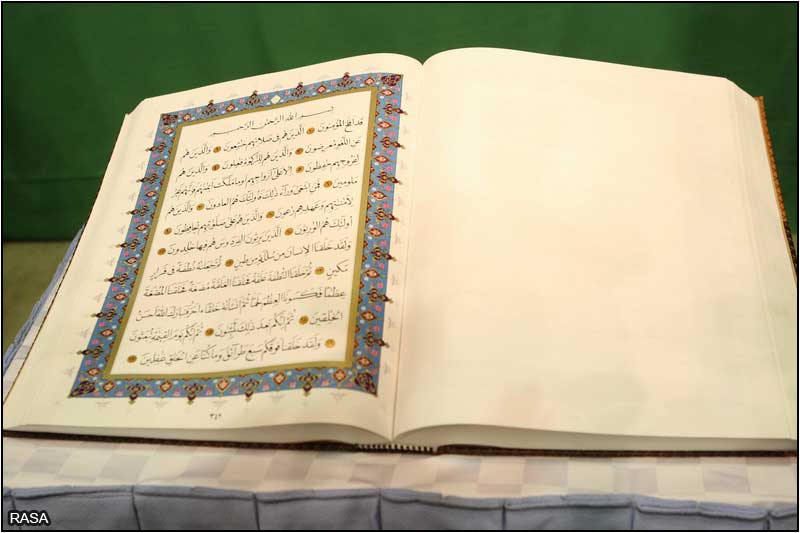 بسم الله الرحمن الرحيم
قد أفلح المؤمنون الذين هم في صلاتهم خشعون والذين هم
عن اللغو معرضون والذين هم للزكوة فعلون والذين هم
لفروجهم حفظون إلا على أزواجهم أو ما ملكت أيمنهم فإنهم غير
ملومين فمن ابتغى وراء ذلك فأولئك هم العادون والذين هم
لأمنتهم وعهدهم رعون والذين هم على صلوتهم يحافظون
أولئك هم الورثون الذين يرثون الفردوس هم فيها خلدون
ولقد خلقنا الإنسان من سللة من طين ثم جعلنه نطفة في قرار
مكين ثم خلقنا النطفة علقة فخلقنا العلقة مضغة فخلقنا المضغة
عظما فكسونا العظم لحما ثم أنشأنه خلقا ءاخر فتبارك الله أحسن
الخلقين ثم إنكم بعد ذلك لميتون ثم إنكم يوم القيمة تبعثون
ولقد خلقنا فوقكم سبع طرائق وما كنا عن الخلق غفلين
٣٤٢
RASA